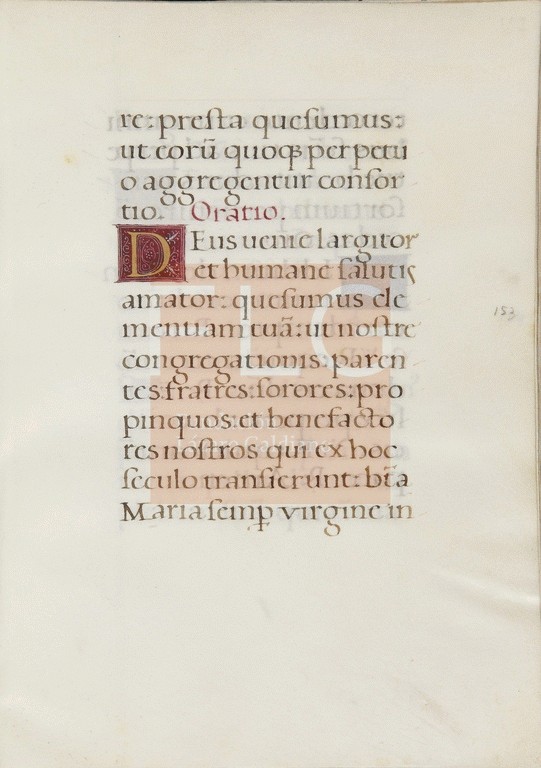 re: presta quesumus:
ut eorū quoqȝ perpetu
o aggregentur consor
tio. Oratio.
Deus uenie largitor
et humane salutis
amator: quesumus cle
mentiam tuā: ut nostre
congregationis: paren
tes: fratres: sorores: pro
pinquos: et benefacto
res nostros qui ex hoc
seculo transierunt: btā
Maria semꝑ virgine in
153